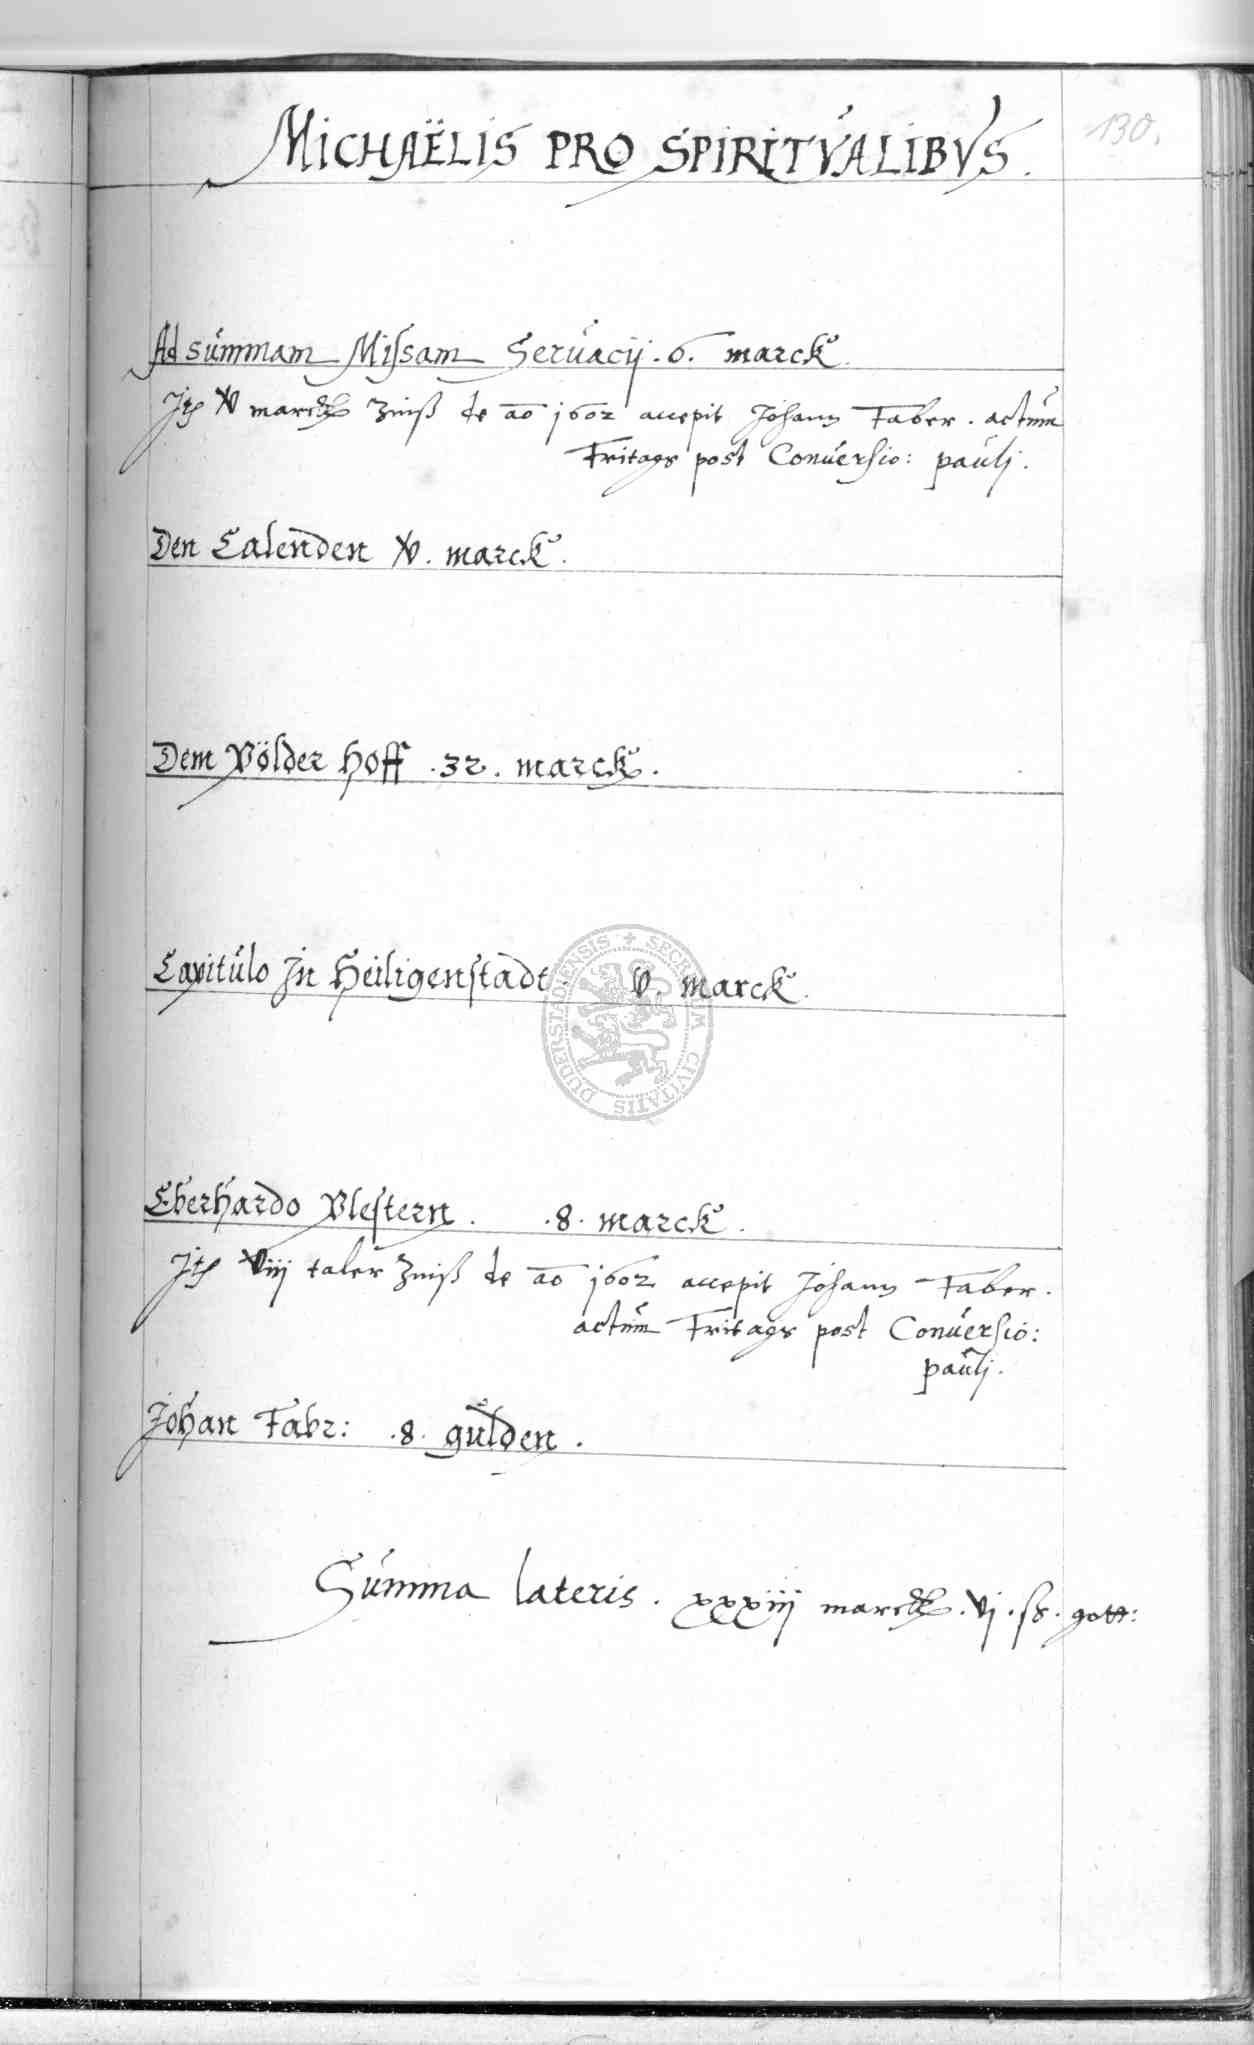 130.
MICHAËLIS PRO SPIRITVALIBVS.
Ad summam Missam Seruacij. 6. marck.
Jts v marck Zinß de ao 1602 accepit Johann Faber. actum
Fritags post Conuersio: pauli.
Den Calenden v. marck.
Dem Pölder Hoff .32. marck.
Capitulo Jn Heiligenstadt. v. marck.
Eberhardo Vlestern. .8. marck.
Jts viij taler Zinß de ao 1602 accepit Johann Faber.
actum Fritags post Conuersio:
pauli.
Johan Fabr: .8. gulden.
Summa lateris. xxxiij marck. vj. ß. gott:
SECRETUM CIVITATIS DUDERSTADIENSIS